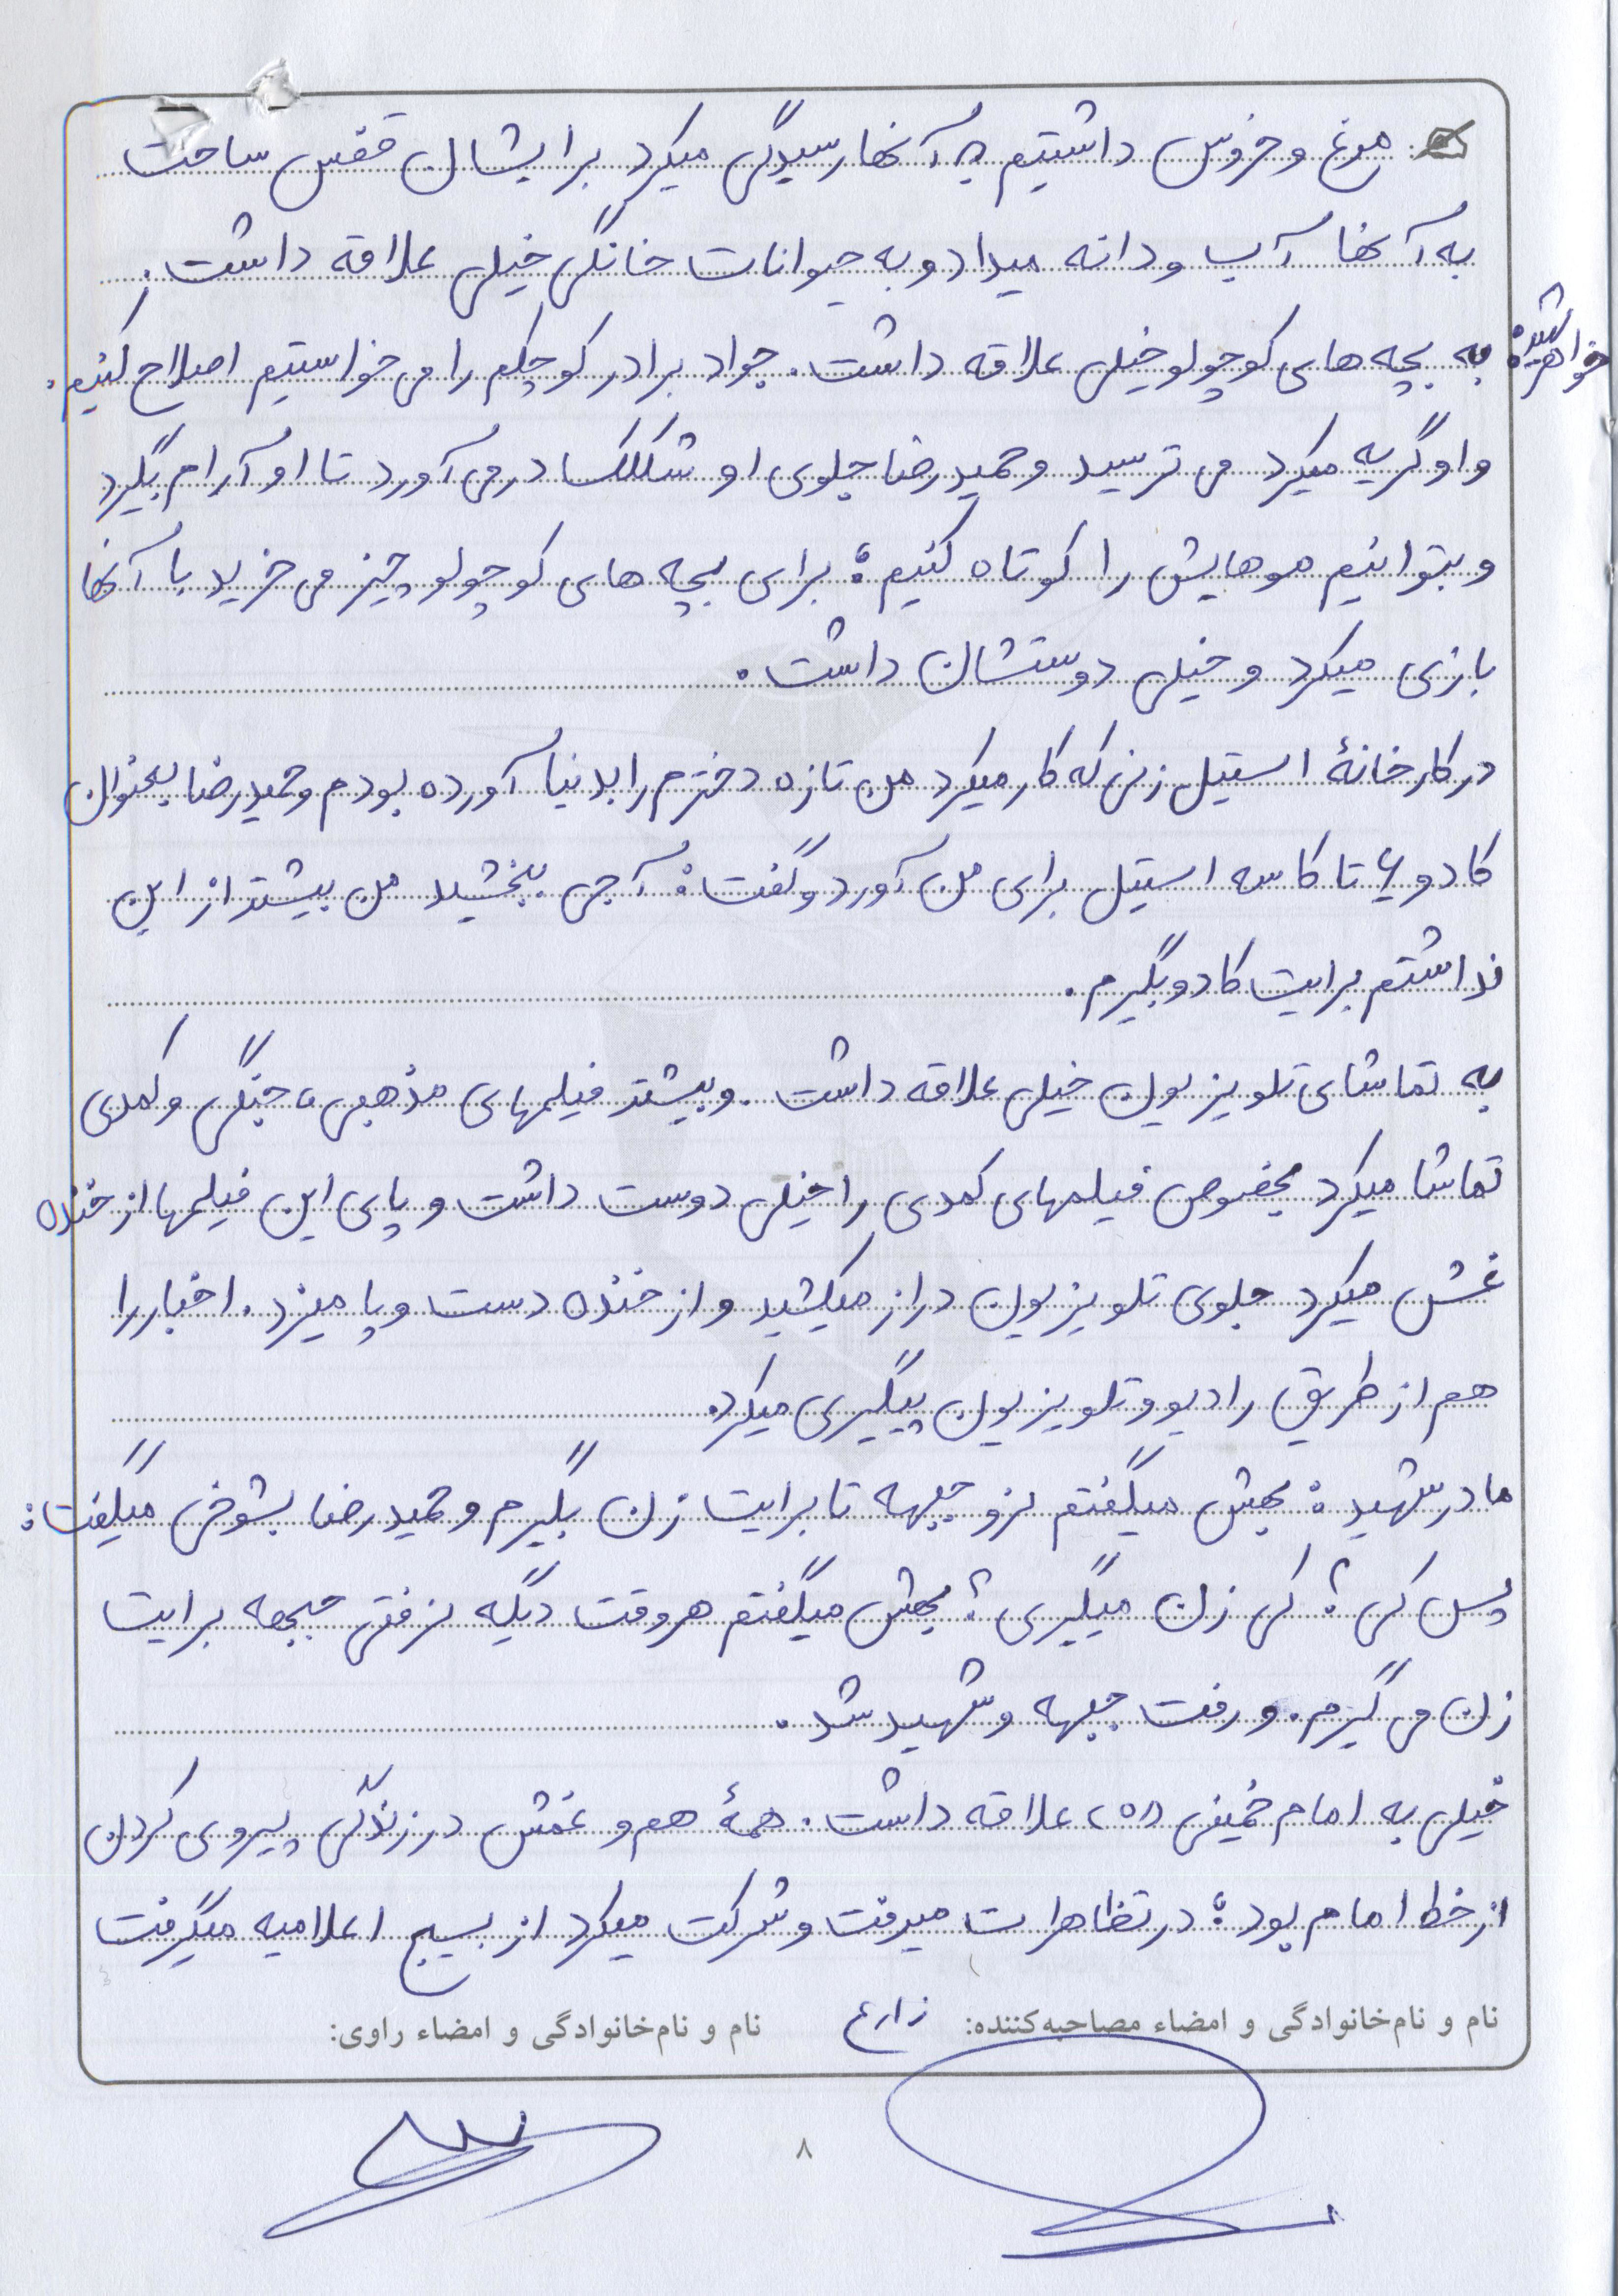 مرغ و خروس داشتیم به آنها رسیدگی میکرد برایشان قفس ساخت
به آنها آب و دانه میداد و به حیوانات خانگی خیلی علاقه داشت.
خواهر شهید: به بچه های کوچولو خیلی علاقه داشت. جواد برادر کوچکم را می خواستیم اصلاح کنیم.
و او گریه میکرد می ترسید و حمیدرضا جلوی او شکلک در می آورد تا او آرام بگیرد
و بتوانیم موهایش را کوتاه کنیم؛ برای بچه های کوچولو چیز می خرید با آنها
بازی میکرد و خیلی دوستشان داشت.
در کارخانهٔ استیل زنی که کار میکرد من تازه دخترم را بدنیا آورده بودم و حمیدرضا بعنوان
کادو ۶ تا کاسه استیل برای من آورد و گفت: آجی ببخشید من بیشتر از این
نداشتم برایت کادو بگیرم.
به تماشای تلویزیون خیلی علاقه داشت. و بیشتر فیلمهای مذهبی، جنگی و کمدی
تماشا میکرد بخصوص فیلمهای کمدی را خیلی دوست داشت و پای این فیلمها از خنده
غش میکرد جلوی تلویزیون دراز میکشید و از خنده دست و پا میزد. اخبار را
هم از طریق رادیو و تلویزیون پیگیری میکرد.
مادر شهید: بهش میگفتم نرو جبهه تا برایت زن بگیرم و حمیدرضا بشوخی میگفت:
پس کی؟ کی زن میگیری؟ بهش میگفتم هر وقت دیگه نرفتی جبهه برایت
زن می گیرم. و رفت جبهه و شهید شد.
خیلی به امام خمینی (ره) علاقه داشت. همهٔ هم و غمش در زندگی پیروی کردن
از خط امام بود؛ در تظاهرات میرفت و شرکت میکرد از بسیج اعلامیه میگرفت
نام و نام‌خانوادگی و امضاء مصاحبه‌کننده: زارع نام و نام‌خانوادگی و امضاء راوی:
۸